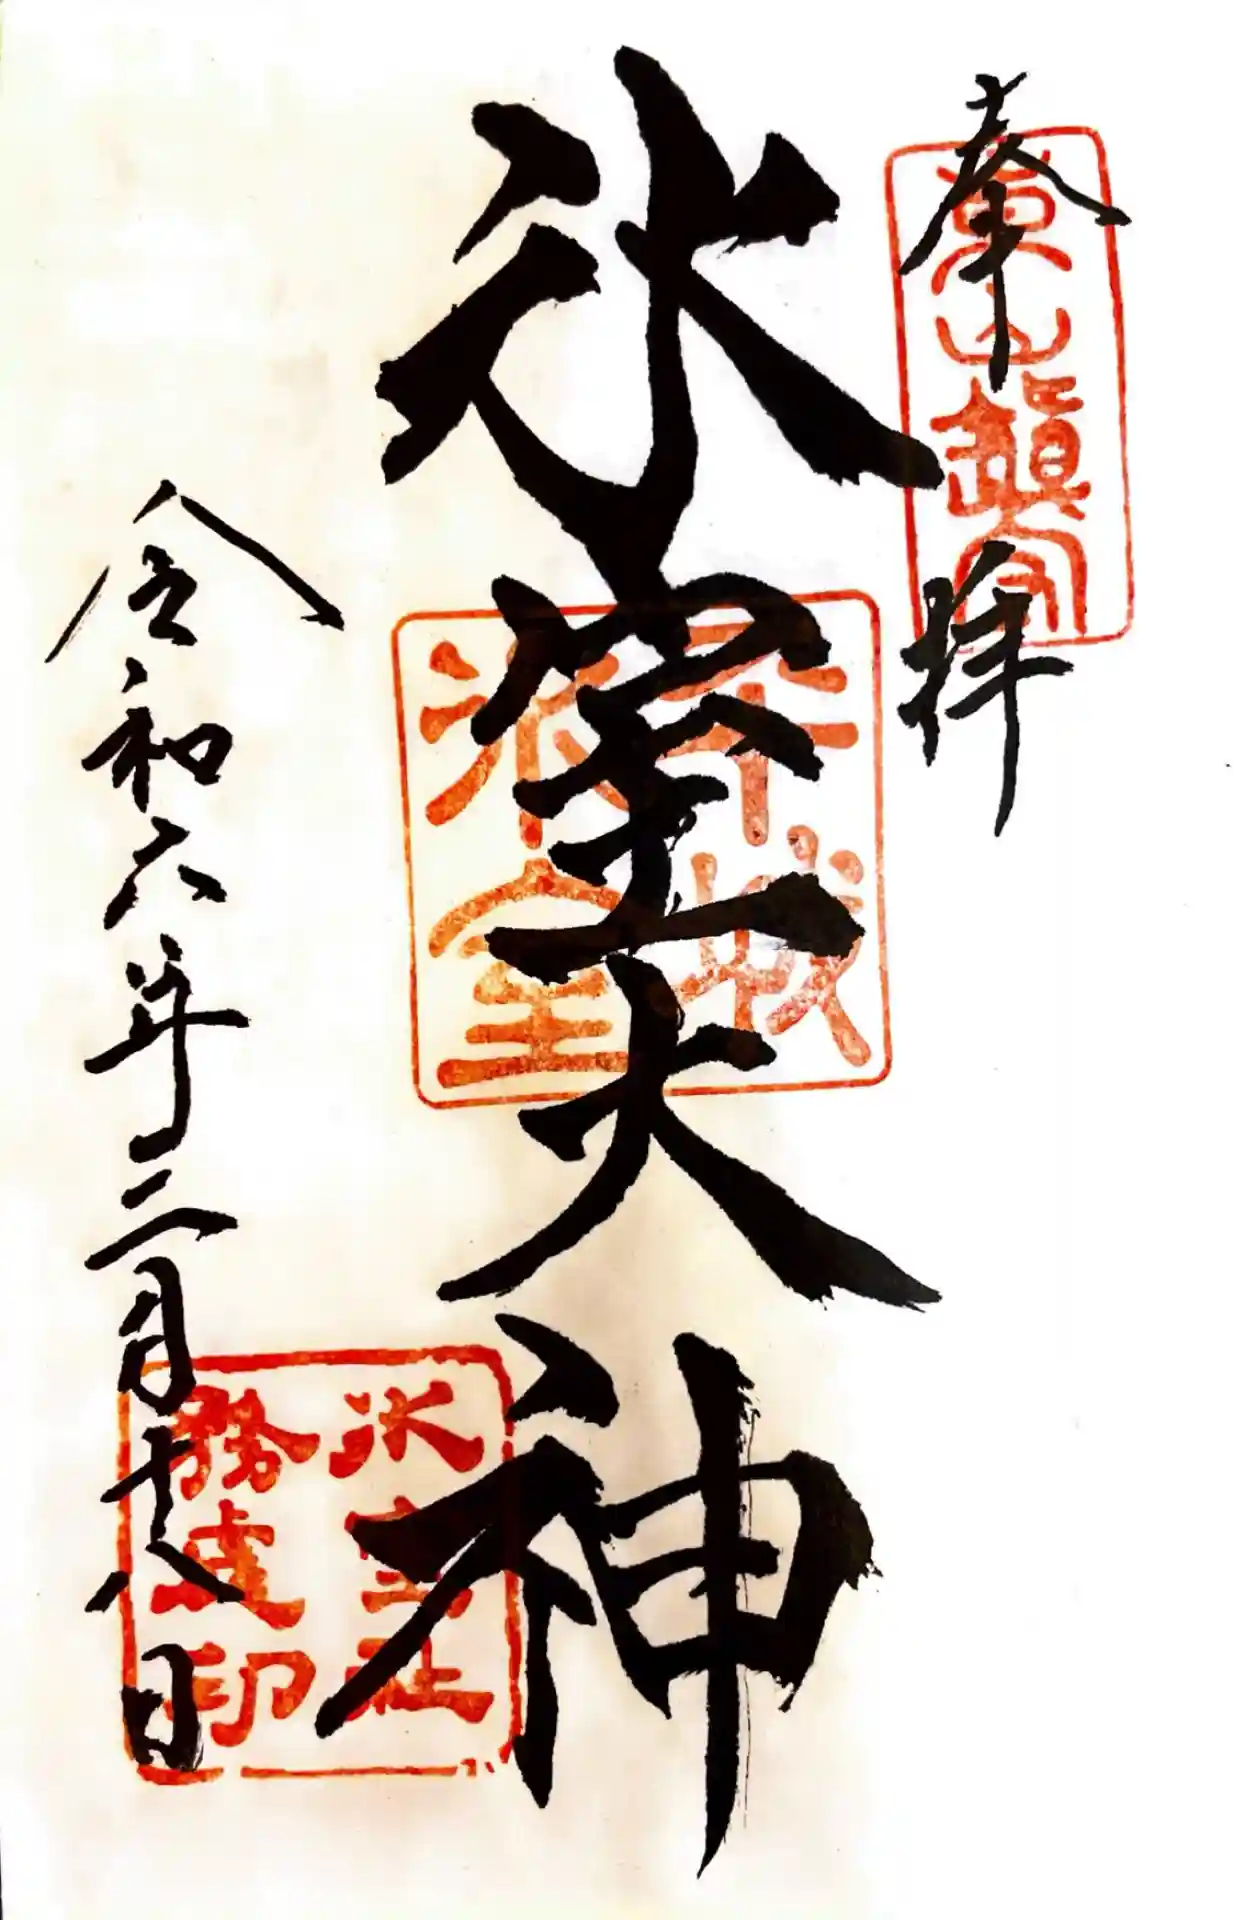 奉拝
東山鎭守
氷室大神
平城
氷室
令和六年三月十八日
氷室社
務處印